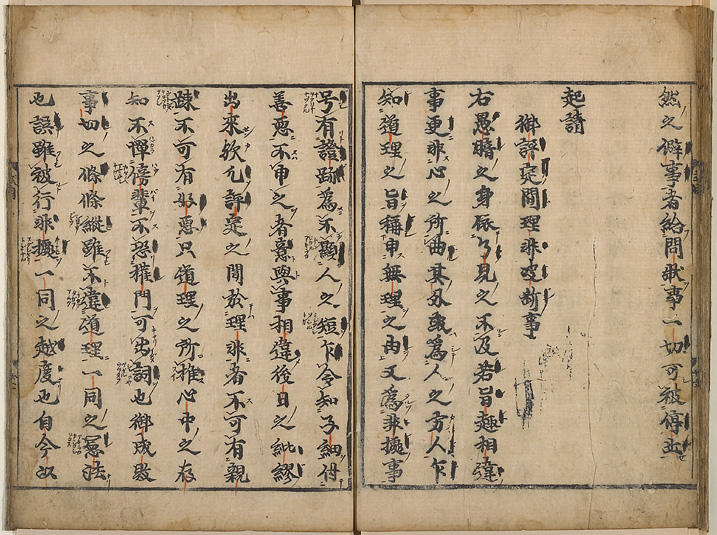 然之僻事者給問状事一切可被停止
起請
御評定間理非決断事
右愚暗之身依了見之不及若旨趣相違
事更非心之所曲其外或為人之方人乍
知道理之旨稱申無理之由又為非據事
号有證跡為不顕人之短乍令知子細付
善悪不申之者意与事相違後日之紕繆
出来歟凡評定之間於理非者不可有親
疎不可有好悪只道理之所推心中之存
知不憚傍輩不恐權門可出詞也御成敗
事切之條々縦雖不違道理一同之憲法
也誤雖被行非據一同之越度也自今以